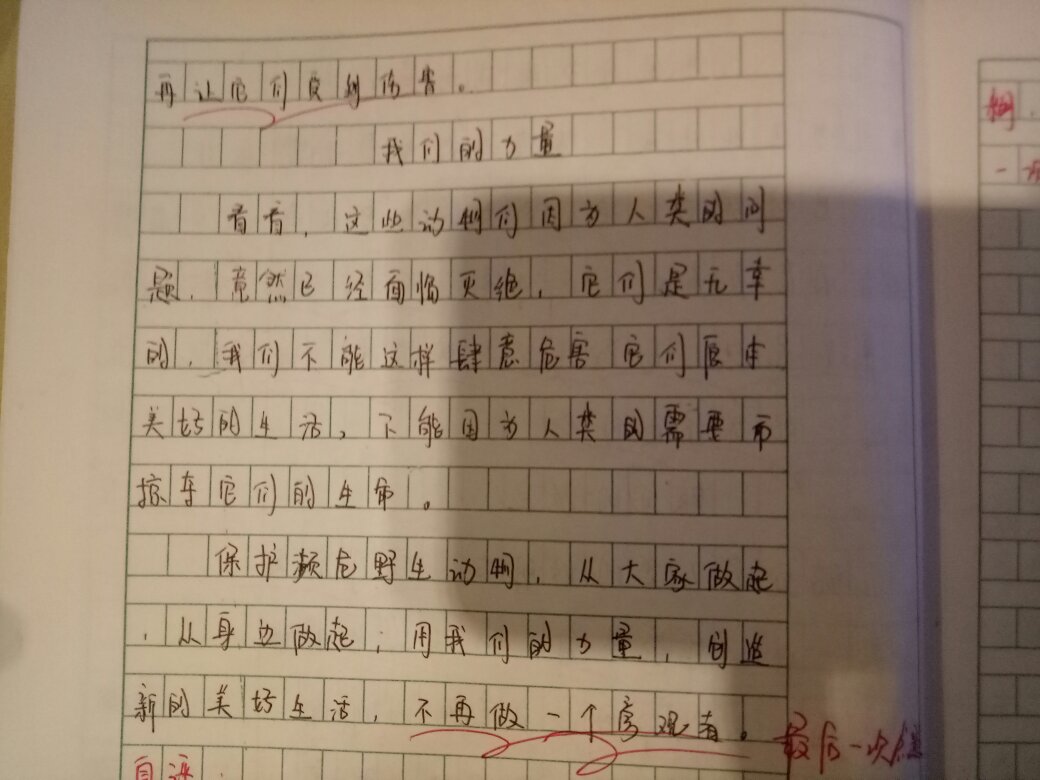 再让它们受到伤害。
我们的力量
看看,这些动物们因为人类的问
题,竟然已经面临灭绝,它们是无辜
的,我们不能这样肆意危害它们原本
美好的生活,不能因为人类的需要而
掠夺它们的生命。
保护濒危野生动物,从大家做起
,从身边做起;用我们的力量,创造
新的美好生活,不再做一个旁观者。
最后一次
自评:
烟
一